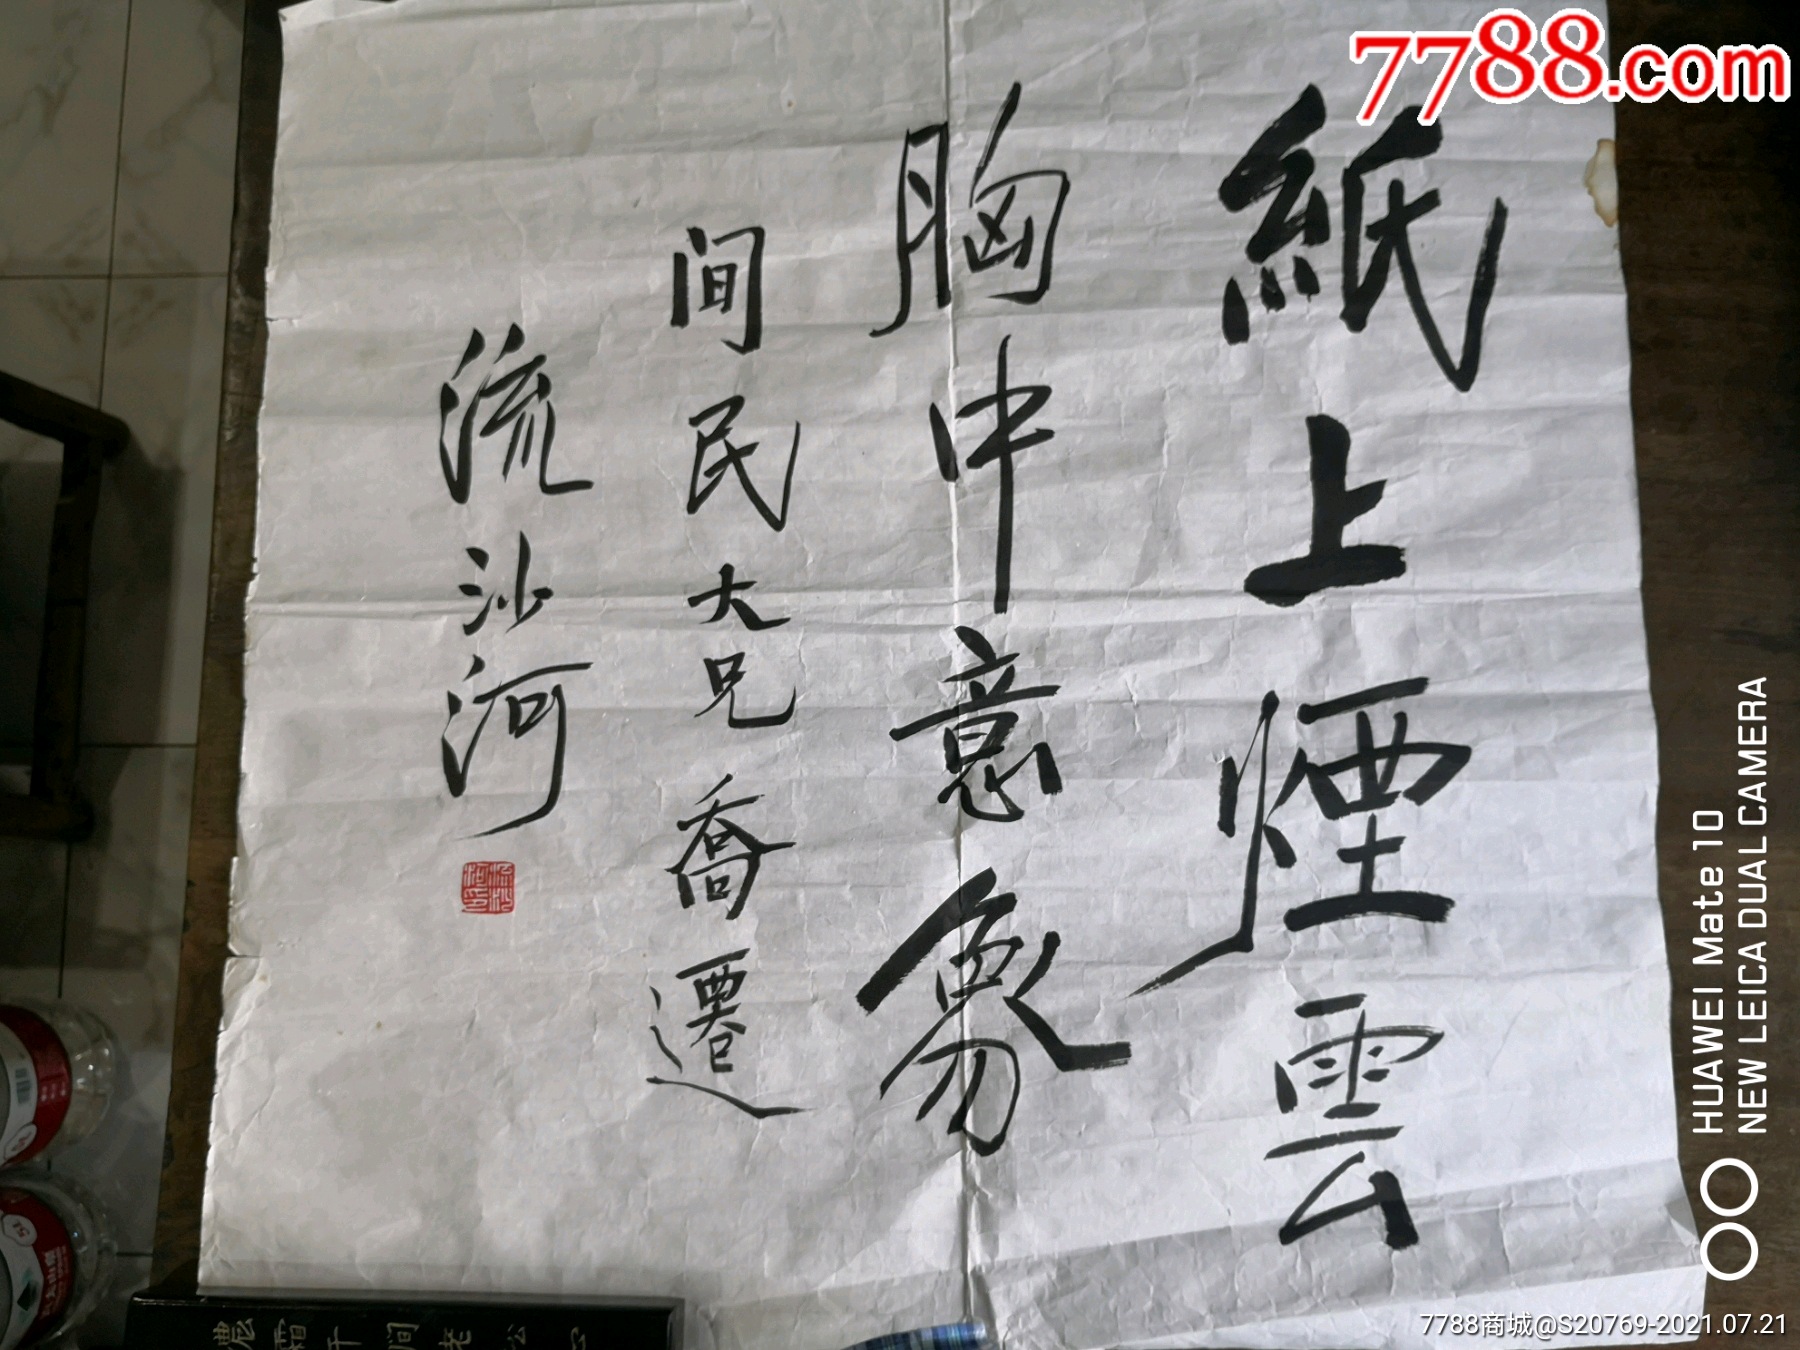 7788.com
紙上煙雲
胸中意象
间民大兄喬遷
流沙河
流沙
河印
濃霜千澗老松心
HUAWEI Mate 10
NEW LEICA DUAL CAMERA
7788商城@S20769-2021.07.21